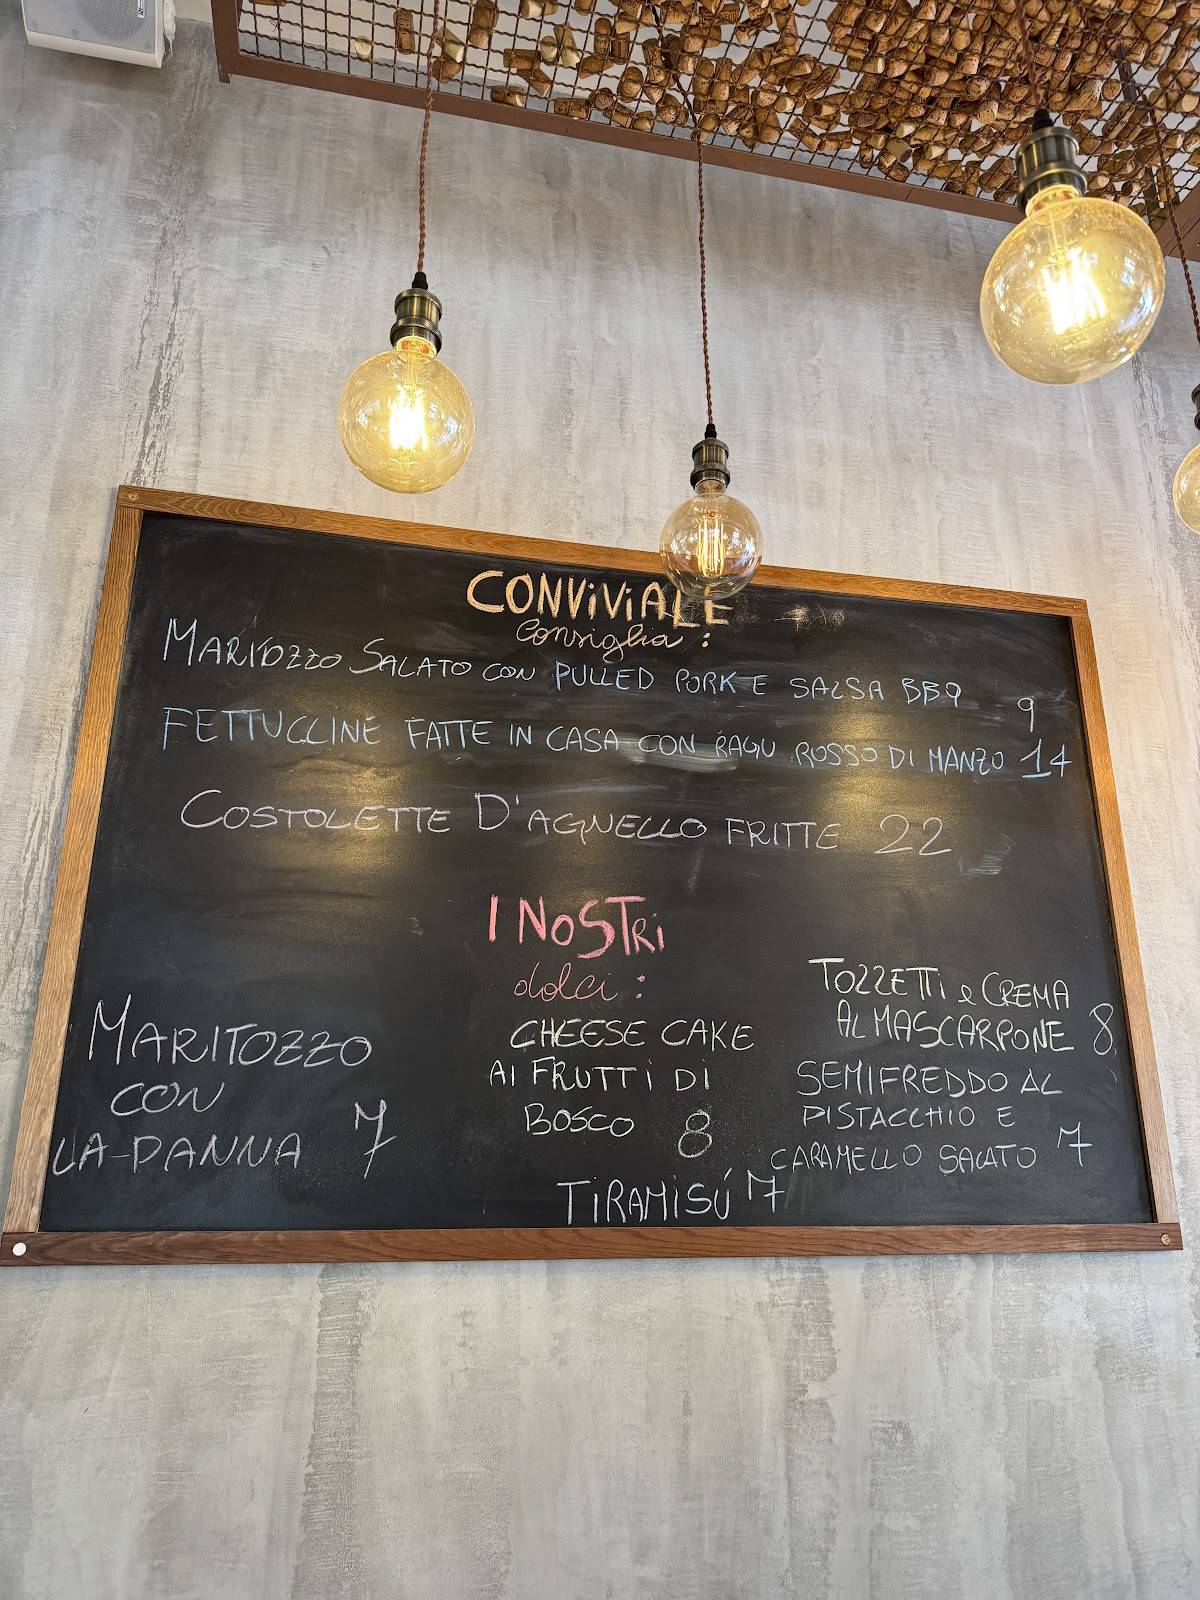 CONVIVIALE
Consiglia :
MARITOZZO SALATO CON PULLED PORK E SALSA BBQ 9
FETTUCCINE FATTE IN CASA CON RAGU ROSSO DI MANZO 14
COSTOLETTE D'AGNELLO FRITTE 22
I NOSTRI
dolci :
MARITOZZO
CON
LA PANNA 7
CHEESE CAKE
AI FRUTTI DI
BOSCO 8
TIRAMISÚ 7
TOZZETTI e CREMA
AL MASCARPONE 8
SEMIFREDDO AL
PISTACCHIO E
CARAMELLO SALATO 7